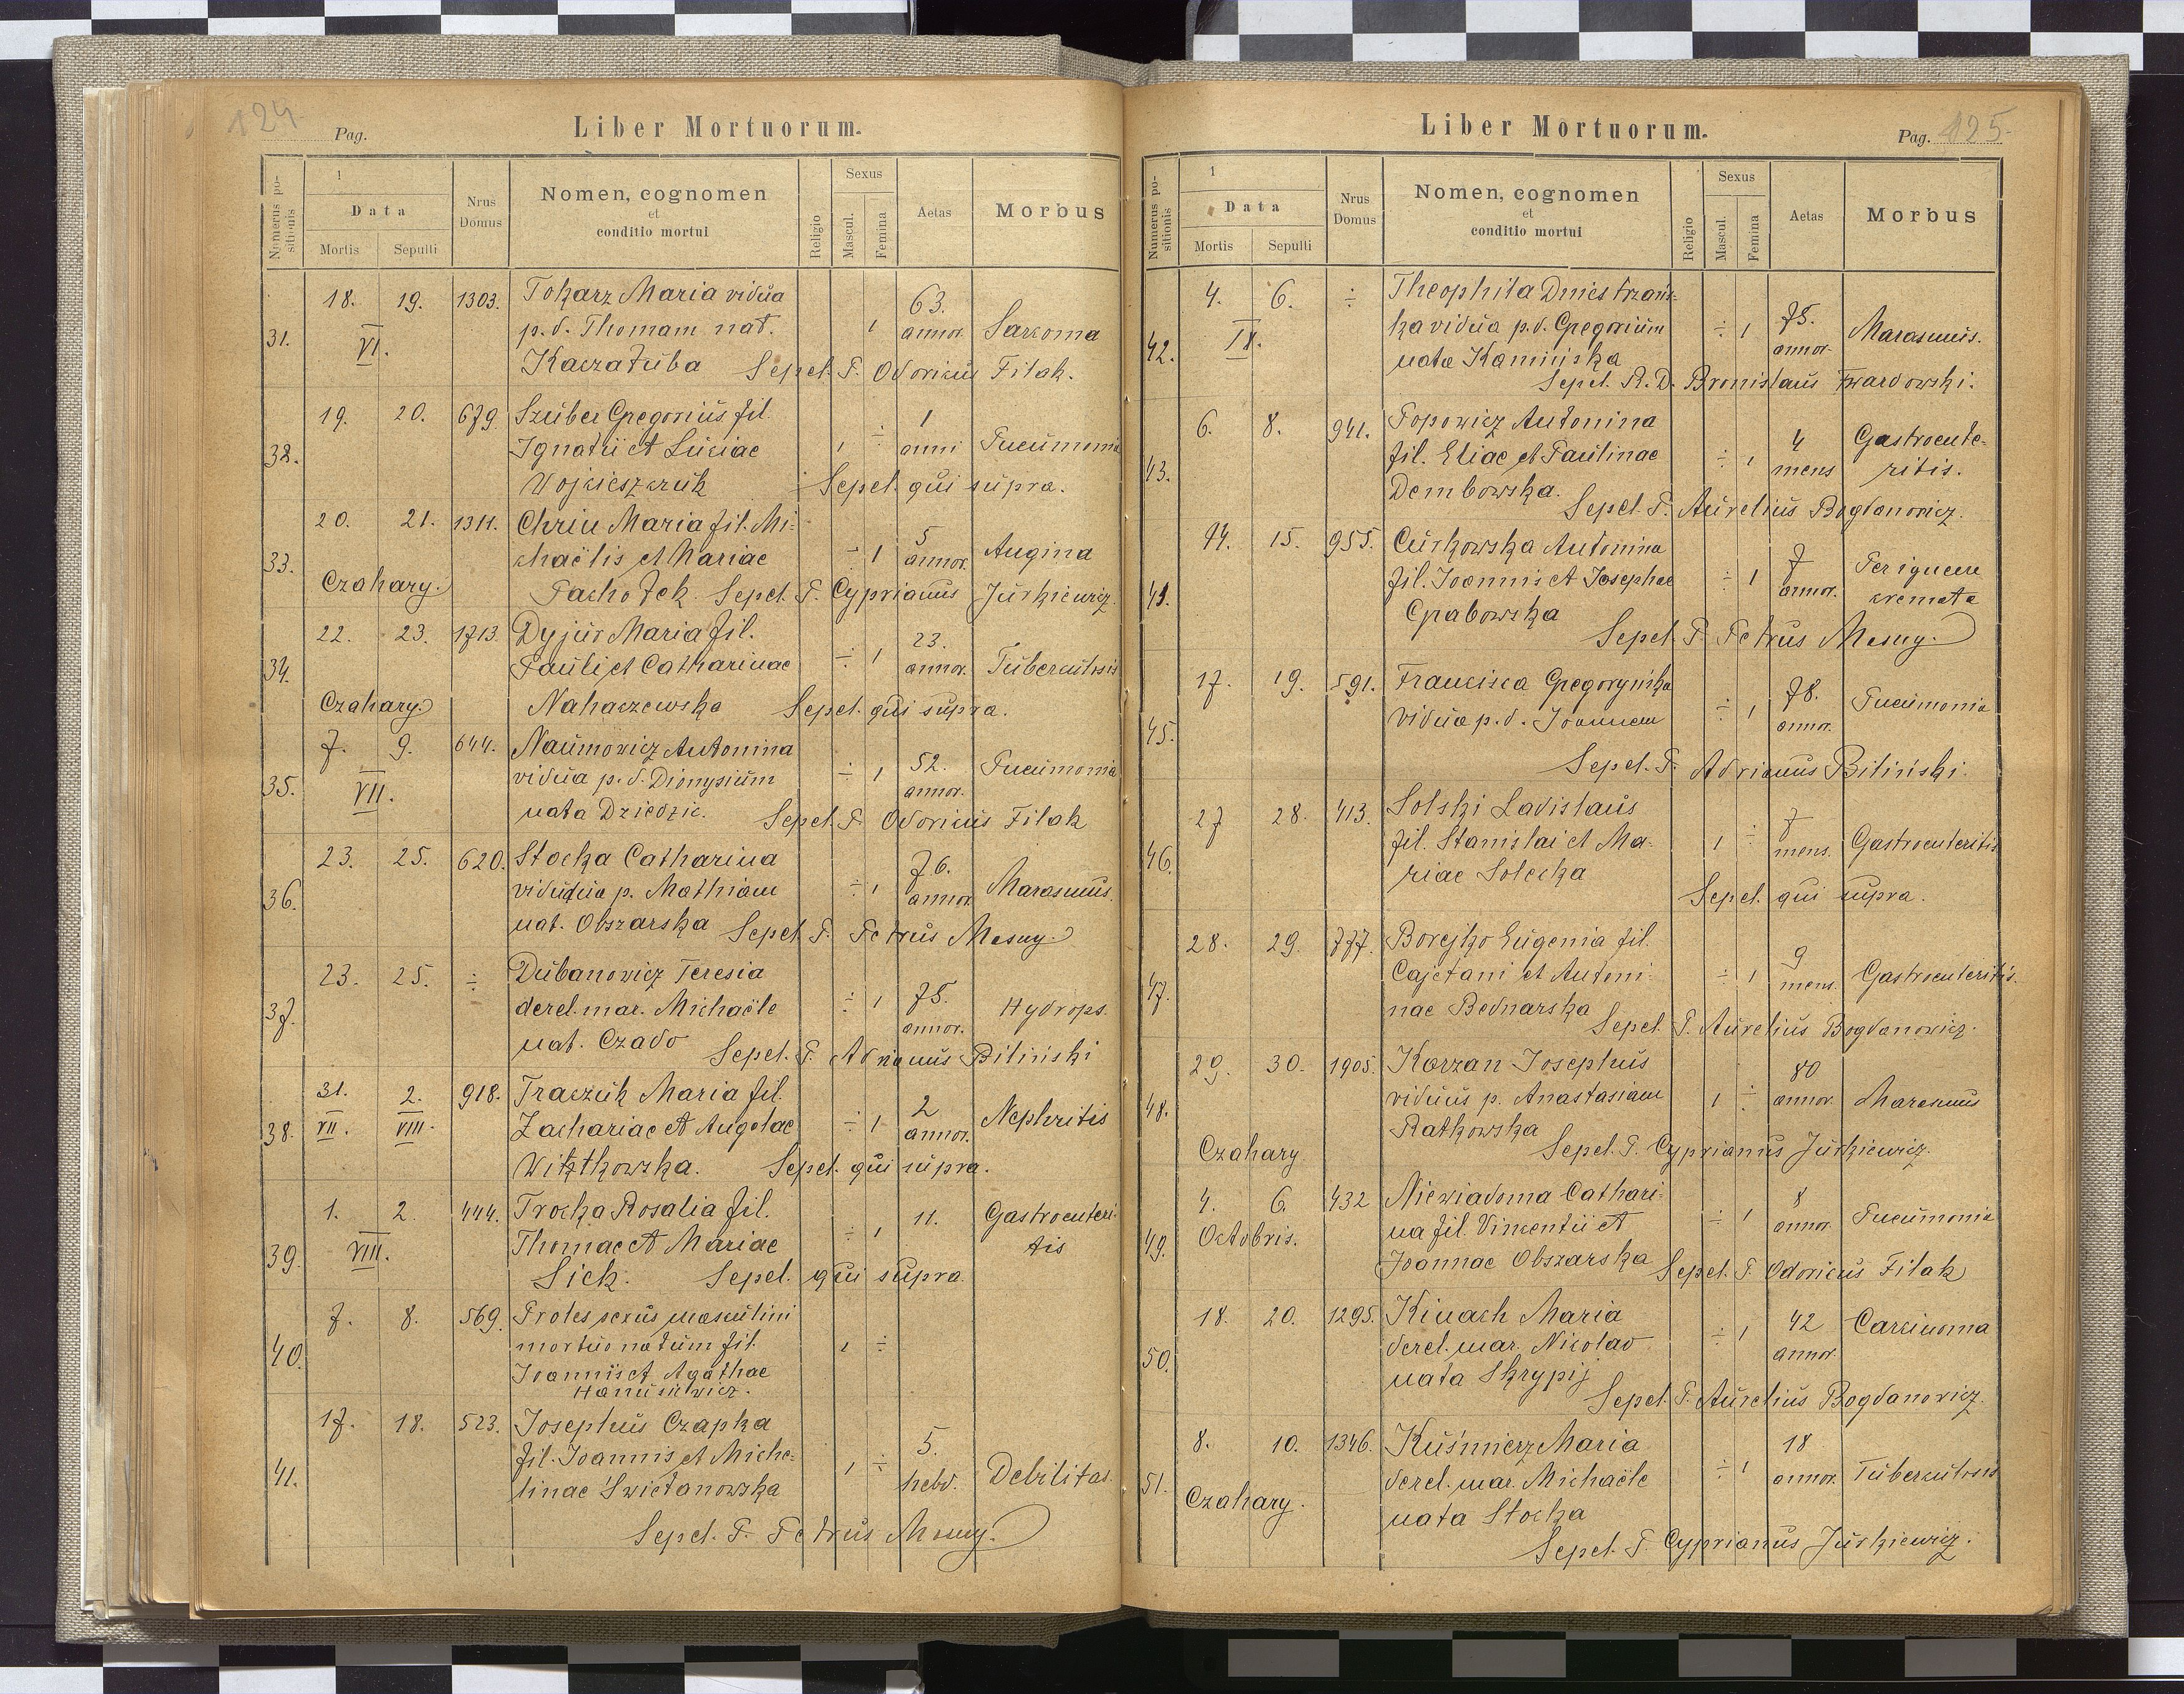 124
Pag.
Liber Mortuorum.
Numerus positionis
1
Data
Mortis
Sepulti
Nrus Domus
Nomen, cognomen
et
conditio mortui
Religio
Sexus
Mascul.
Femina
Aetas
Morbus
18. 19. 1303. Tokarz Maria vidua 63.
31. VI. p. d. Thomam nat. 1 annor. Sarcoma
Kaczałuba Sepel. P. Odoricus Fitak.
19. 20. 679. Szuber Gregorius fil. 1
32. Ignatii et Luciae 1 ÷ anni Pneumonia
Wojcieszczuk Sepel. qui supra.
20. 21. 1311. Chriu Maria fil. Mi- 5
33. chaëlis et Mariae ÷ 1 annor. Angina
Czahary. Pachołek Sepel. P. Cyprianus Jurkiewicz.
22. 23. 1713. Dyjur Maria fil. 23.
34. Pauli et Catharinae ÷ 1 annor. Tuberculosis
Czahary. Nahaczewska Sepel. qui supra.
7. 9. 644. Naumowicz Antonina 52.
35. VII. vidua p. d. Dionysium ÷ 1 annor. Pneumonia
nata Dziedzic. Sepel. P. Odoricus Fitak
23. 25. 620. Stocka Catharina 76.
36. vidudua p. Mathiam ÷ 1 annor. Marasmus.
nat. Obszarska Sepel. P. Petrus Mesny.
23. 25. ÷ Dubanowicz Teresia
37. derel. mar. Michaële ÷ 1 75. annor. Hydrops.
nat. Czado Sepel. P. Adrianus Biliński
31. 2. 918. Traczuk Maria fil. 2
38. VII. VIII. Zachariae et Angelae ÷ 1 annor. Nephritis
Witkowska. Sepel. qui supra.
1. 2. 444. Trocka Rosalia fil. 11. Gastroenteri-
39. VIII. Thomae et Mariae ÷ 1 tis
Sick. Sepel. qui supra.
7. 8. 569. Proles sexus masculini
40. mortuo natum fil. 1 ÷
Joannis et Agathae
Hanusiewicz.
17. 18. 523. Josephus Czapka 5.
41. fil. Joannis et Miche- 1 ÷ hebd. Debilitas.
linae Świetanowska
Sepel. P. Petrus Mesny.
Liber Mortuorum.
Pag. 125.
Numerus positionis
1
Data
Mortis
Sepulti
Nrus Domus
Nomen, cognomen
et
conditio mortui
Religio
Sexus
Mascul.
Femina
Aetas
Morbus
4. 6. ÷ Theophila Dniestrzań-
42. IX. ska vidua p. d. Gregorium ÷ 1 75. annor. Marasmus.
nata Kamińska
Sepel. R. D. Bronislaus Twardowski.
6. 8. 941. Popowicz Antonina
43. fil. Eliae et Paulinae ÷ 1 4 mens Gastroente-
Dembowska. ritis.
Sepel. P. Aurelius Bogdanowicz.
14. 15. 955. Curkowska Antonina
44. fil. Joannis et Josephae ÷ 1 7 annor. Per igneum
Grabowska cremata
Sepel. P. Petrus Mesny.
17. 19. 591. Francisca Gregoryńska
45. vidua p. d. Joannem ÷ 1 78. annor. Pneumonia
Sepel. P. Adrianus Biliński.
27 28. 413. Solski Ladislaus
46. fil. Stanislai et Ma- 1 ÷ 7 mens. Gastroenteritis
riae Solecka
Sepel. qui supra.
28. 29. 777. Borejko Eugenia fil.
47. Cajetani et Antoni- ÷ 1 9 mens. Gastroenteritis.
nae Bednarska
Sepel. P. Aurelius Bogdanowicz.
29. 30. 1905. Korzan Josephus 80
48. viduus p. Anastasiam 1 ÷ annor. Marasmus
Ratkowska
Czahary Sepel. P. Cyprianus Jurkiewicz.
4. 6. 432 Niewiadoma Cathari- 8
49. Octobris. na fil. Vincentii et ÷ 1 annor. Pneumonia
Joannae Obszarska Sepel. P. Odoricus Fitak
18. 20. 1295. Kinach Maria 42 Carcinoma
50. derel. mar. Nicolao ÷ 1 annor.
nata Skrypij
Sepel. P. Aurelius Bogdanowicz.
8. 10. 1346. Kuśmierz Maria 18
51. derel. mar. Michaële ÷ 1 annor. Tuberculosis
Czahary. nata Stocka
Sepel. P. Cyprianus Jurkiewicz.